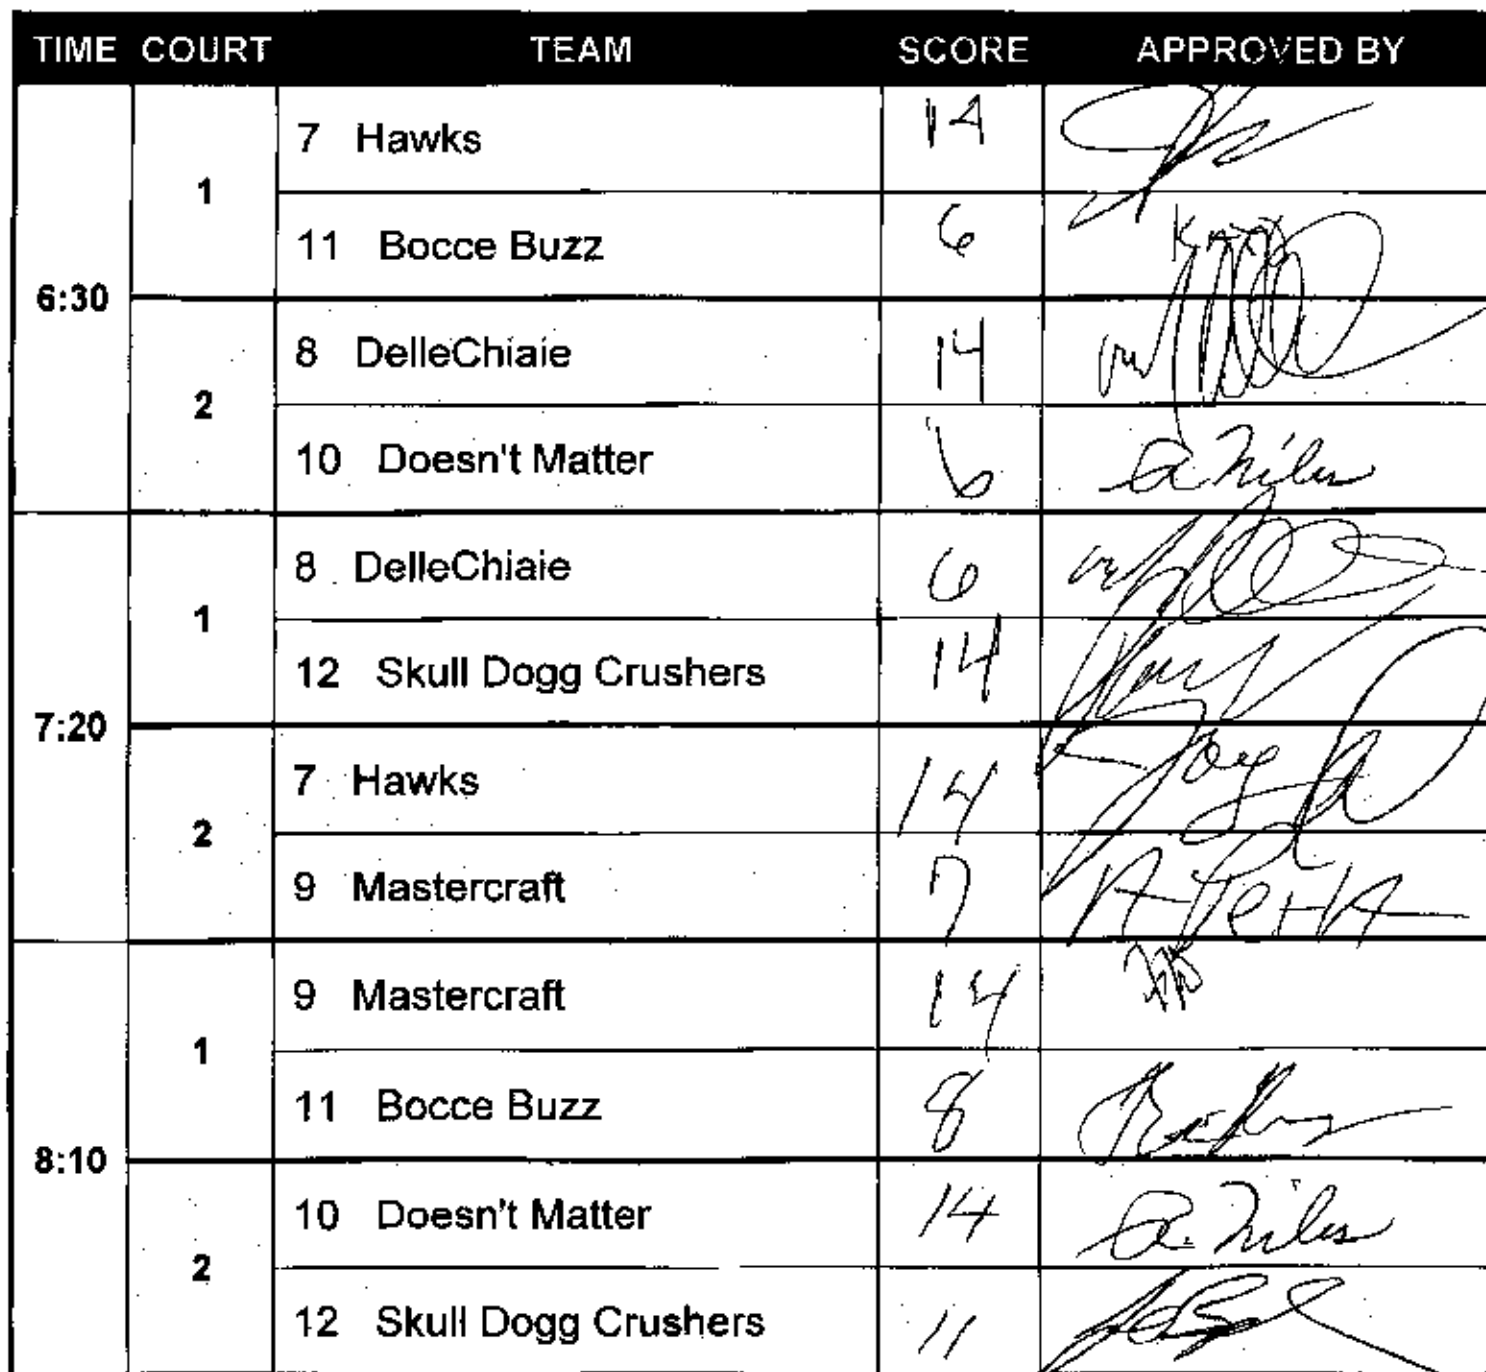 TIME COURT TEAM SCORE APPROVED BY
6:30
1
7 Hawks 14
11 Bocce Buzz 6
2
8 DelleChiaie 14
10 Doesn't Matter 6 a. Miles
7:20
1
8 DelleChiaie 6
12 Skull Dogg Crushers 14
2
7 Hawks 14
9 Mastercraft 7
8:10
1
9 Mastercraft 14
11 Bocce Buzz 8
2
10 Doesn't Matter 14 a. Miles
12 Skull Dogg Crushers 11